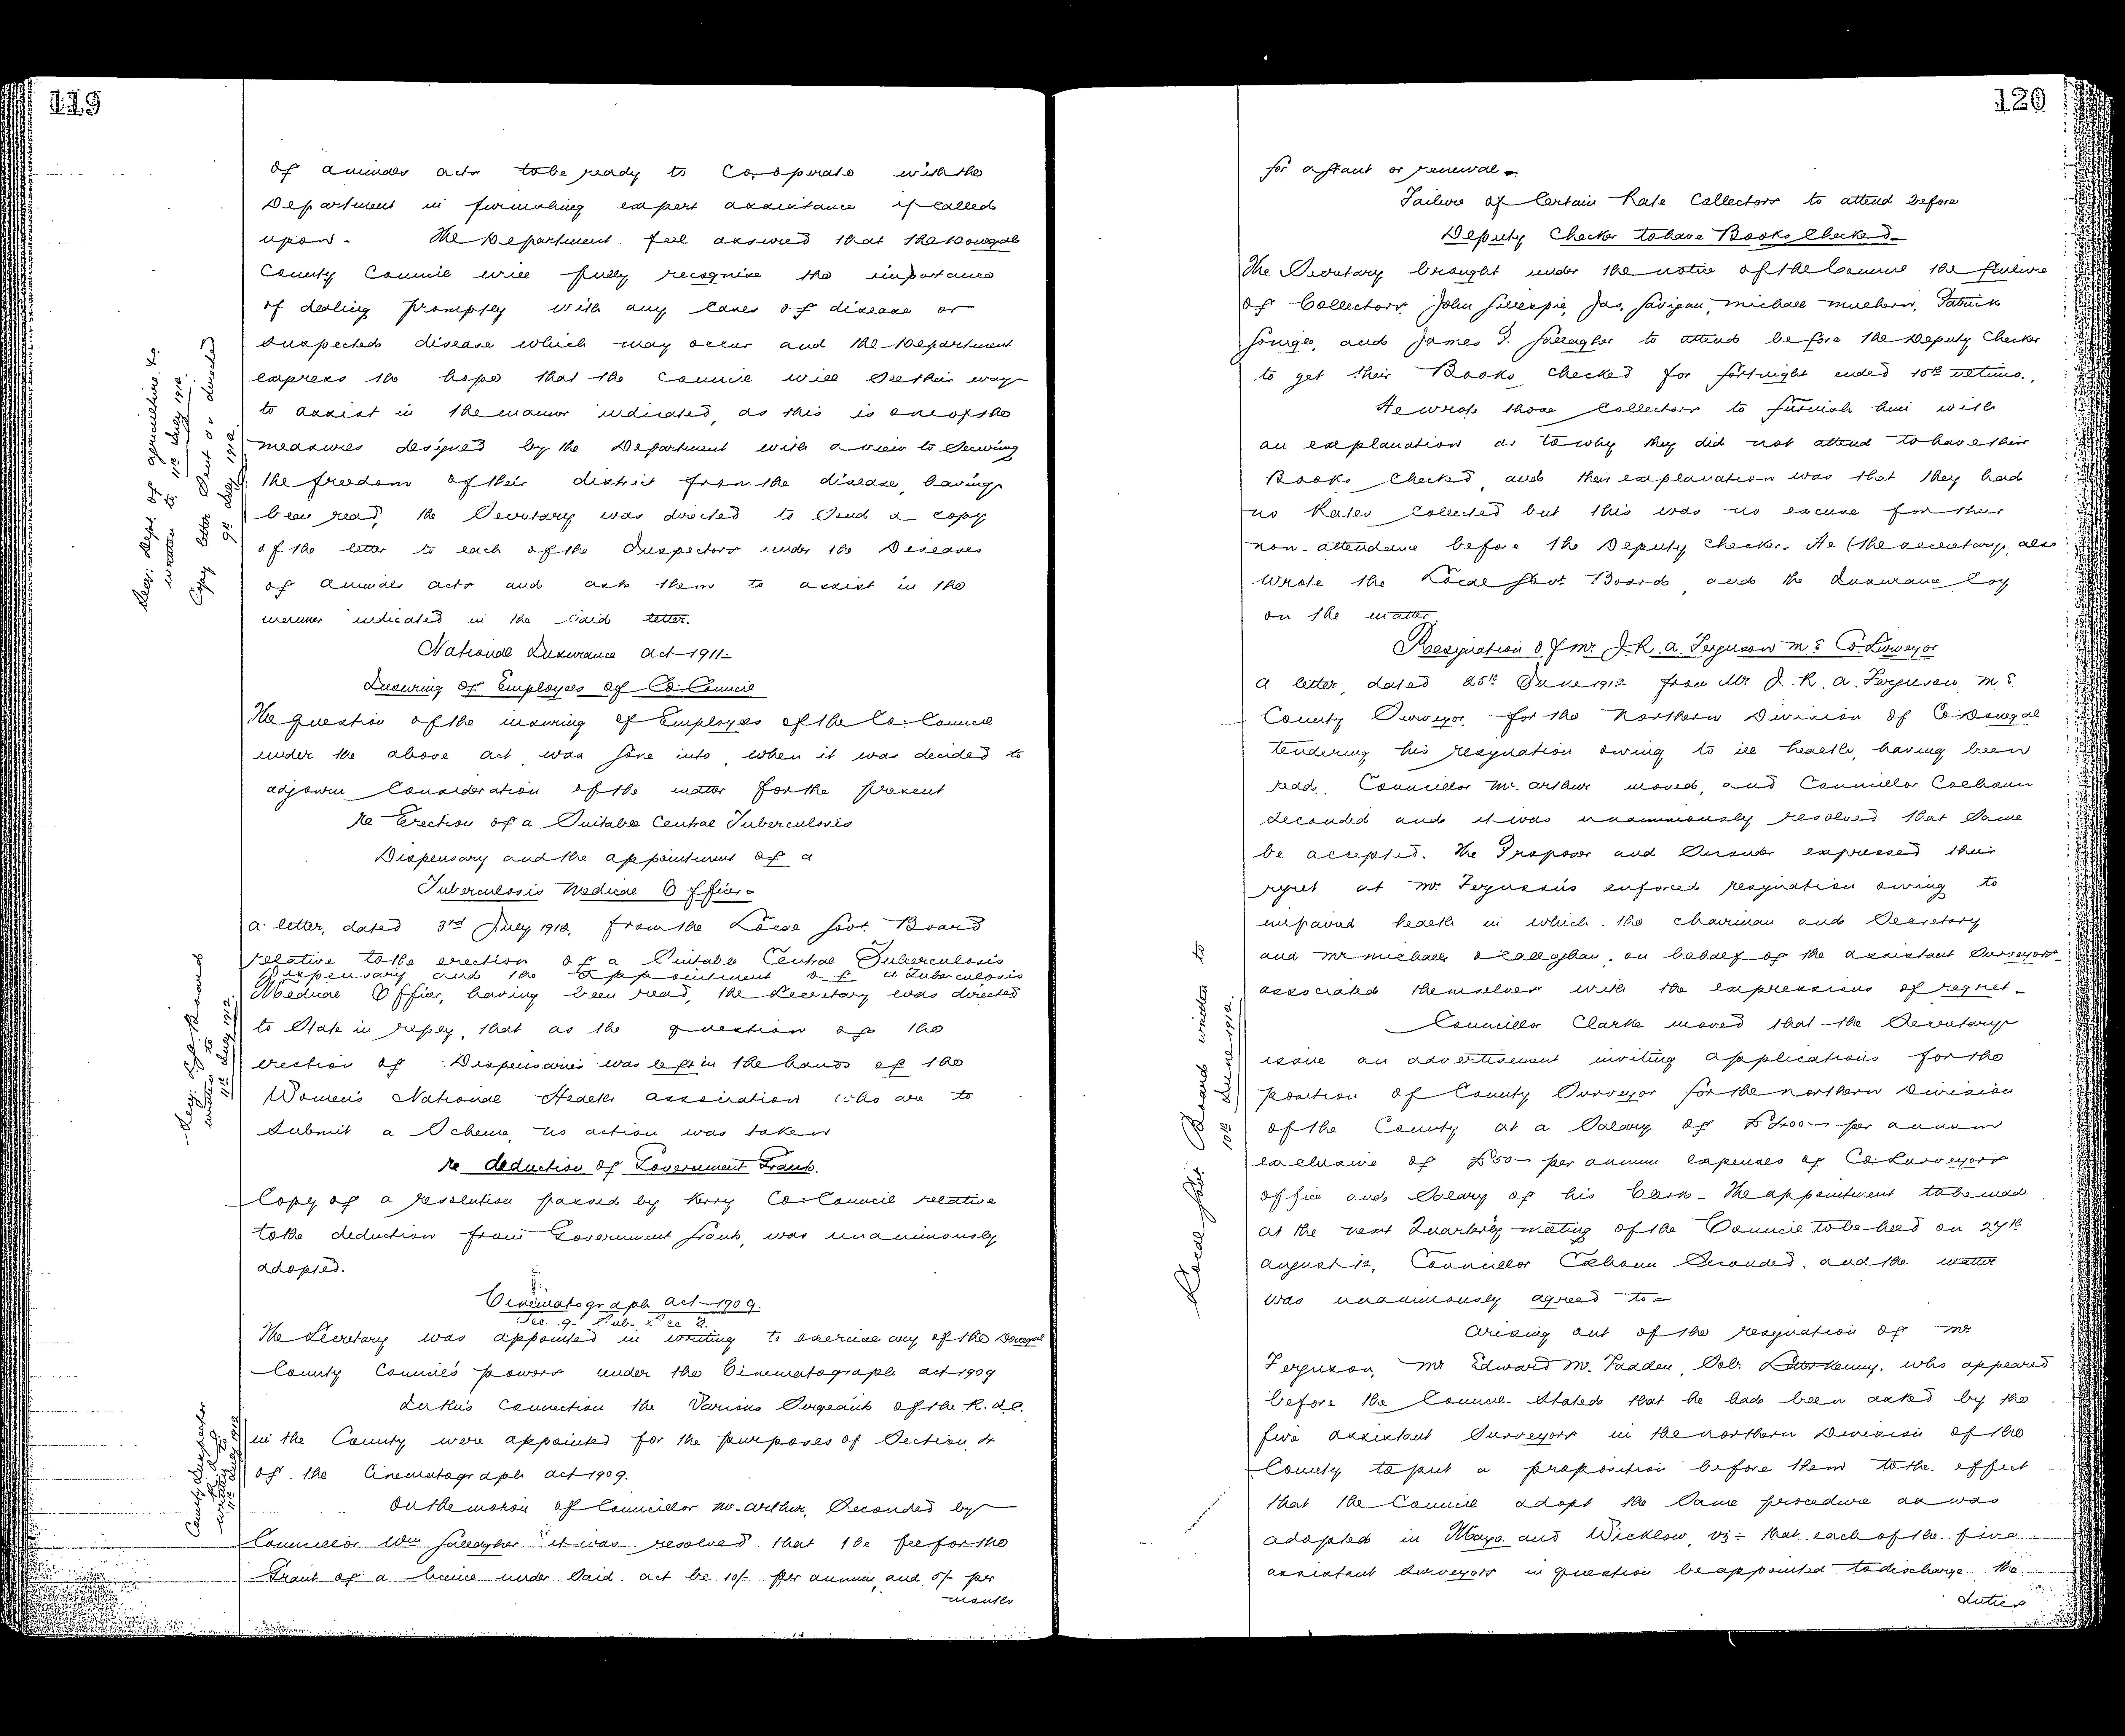 119
of animals acts to be ready to Co-operate with the
Department in furnishing expert assistance if called
upon. The Department feel assured that the Donegal
County Council will fully recognise the importance
of dealing promptly with any Cases of disease or
suspected disease which may occur and the Department
express the hope that the Council will see their way
to assist in the manner indicated, as this is one of the
measures designed by the Department with a view to securing
the freedom of their district from the disease, having
been read, the Secretary was directed to Send a copy
of the letter to each of the Inspectors under the Diseases
of animals acts and ask them to assist in the
manner indicated in the said letter.
Secy: Dept. of agriculture &c
written to 11th July 1912.
Copy letter Sent as directed
9th July 1912.
National Insurance act 1911-
Insuring of Employees of Co: Council
The question of the insuring of Employees of the Co: Council
under the above act, was gone into, when it was decided to
adjourn Consideration of the matter for the present
re Erection of a Suitable Central Tuberculosis
Dispensary and the appointment of a
Tuberculosis Medical Officer-
a letter, dated 3rd July 1912, from the Local Govt. Board
relative to the erection of a Suitable Central Tuberculosis
Dispensary and the appointment of a Tuberculosis
Medical Officer, having been read, the Secretary was directed
to State in reply, that as the question of the
erection of Dispensaries was left in the hands of the
Women's National Health association who are to
Submit a Scheme, no action was taken
Secy. L. G. Board
written to
11th July 1912.
re deduction of Government Grants.
Copy of a resolution passed by Kerry Co: Council relative
to the deduction from Government Grants, was unanimously
adopted.
Cinematograph act-1909.
Sec. 9- Sub-Sec 2.
The Secretary was appointed in writing to exercise any of the Donegal
County Council's powers under the Cinematograph act 1909
In this Connection the Various Sergeants of the R.I.C.
in the County were appointed for the purposes of Section 4
of the Cinematograph act 1909.
County Inspector
R.I.C.
written to
11th July 1912
On the motion of Councillor Mc.arthur, Seconded by
Councillor Wm Gallagher it was resolved that the fee for the
Grant of a licence under Said act be 10/- per annum, and 5/- per
month
120
for a Grant or renewal-
Failure of Certain Rate Collectors to attend before
Deputy Checker to have Books Checked-
The Secretary brought under the notice of the Council the failure
of Collectors John Gillespie, Jas. Gavigan, Michael Mulhern, Patrick
and James P. Gallagher to attend before the Deputy Checker
to get their Books Checked for fortnight ended 15th ultimo.
He wrote those Collectors to furnish him with
an explanation as to why they did not attend to have their
Books Checked, and their explanation was that they had
no Rates Collected but this was no excuse for their
non-attendance before the Deputy Checker. He (the secretary) also
wrote the Local Govt. Board, and the Insurance Coy
on the matter.
Resignation of Mr J.R.a. Ferguson M.E. Co. Surveyor
a letter, dated 25th June 1912 from Mr J.R.a. Ferguson M.E.
County Surveyor for the Northern Division of Co: Donegal
tendering his resignation owing to ill health, having been
read. Councillor Mc.arthur moved, and Councillor Colhoun
seconded and it was unanimously resolved that Same
be accepted. The Proposer and Seconder expressed their
regret at Mr. Ferguson's enforced resignation owing to
impaired health in which the Chairman and Secretary
and Mr Michael O'Callaghan, on behalf of the assistant Surveyors
associated themselves with the expressions of regret-
Councillor Clarke moved that the Secretary
issue an advertisement inviting applications for the
position of County Surveyor for the northern Division
of the County at a Salary of £400- per annum
exclusive of £50- per annum expenses of Co: Surveyor's
office and Salary of his Clerk- The appointment to be made
at the next Quarterly meeting of the Council to be held on 27th
august 12, Councillor Colhoun Seconded, and the matter
was unanimously agreed to-
Local Govt. Board written to
10th June 1912.
arising out of the resignation of Mr
Ferguson, Mr Edward Mc.Fadden, Solr. Letterkenny, who appeared
before the Council Stated that he had been asked by the
five assistant Surveyors in the northern Division of the
County to put a proposition before them to the effect
that the Council adopt the Same procedure as was
adopted in Mayo and Wicklow, viz:- that each of the five
assistant Surveyors in question be appointed to discharge the
duties